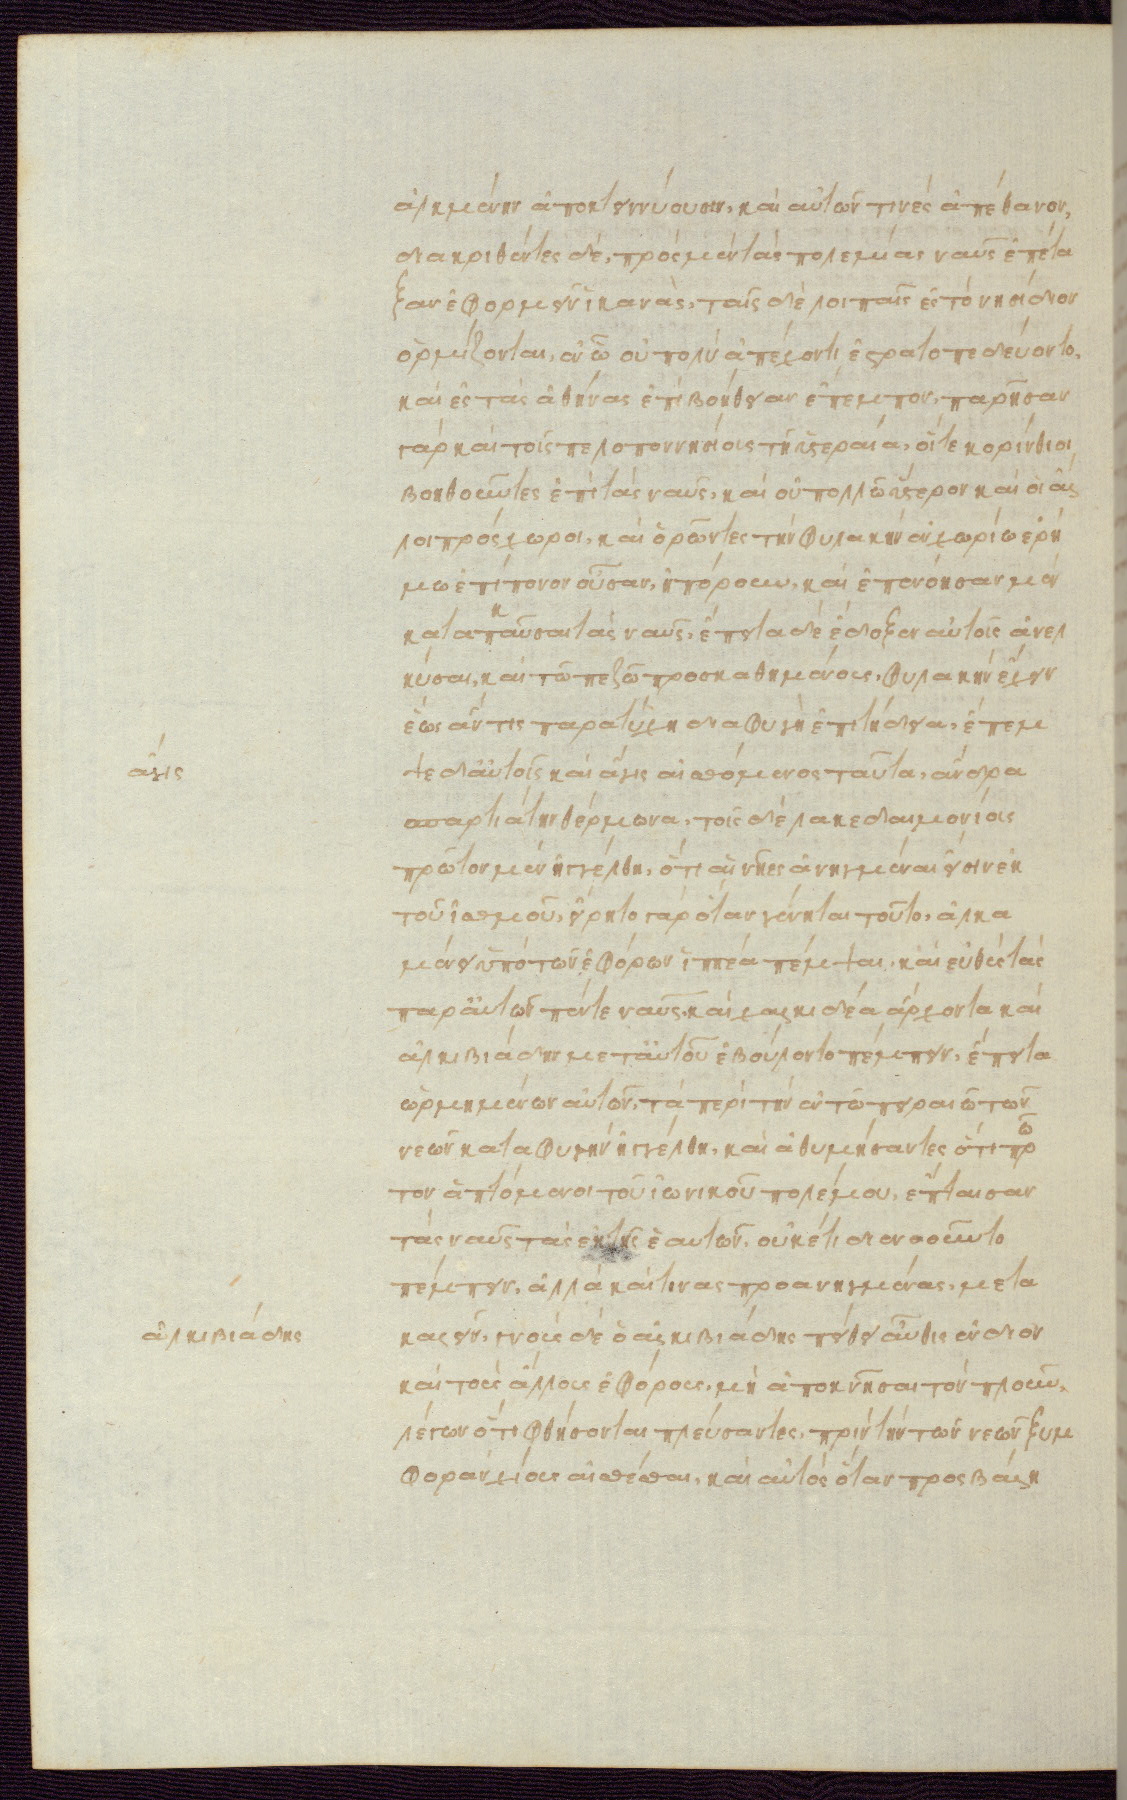 ἀλκμένην ἀποκτεννύουσιν, καὶ αὐτῶν τινὲς ἀπέθανον,
διακριθέντες δὲ, πρὸς μὲν τὰς πολεμίας ναῦς ἐπέτα
ξαν ἐφορμεῖν ἱκανὰς, ταῖς δὲ λοιπαῖς ἐς τὸ νησίδιον
ὁρμίζονται, ἐν ὧ οὐ πολὺ ἀπέχοντι ἐστρατοπεδεύοντο,
καὶ ἐς τὰς ἀθήνας ἐπὶ βοήθειαν ἔπεμπον, παρῆσαν
γὰρ καὶ τοῖς πελοποννησίοις τῆ ὑστεραία, οἵ τε κορίνθιοι
βοηθοῦντες ἐπὶ τὰς ναῦς, καὶ οὐ πολλῶ ὕστερον καὶ οἱ ἄλ
λοι πρόσχωροι, καὶ ὁρῶντες τὴν φυλακὴν ἐν χωρίω ἐρή
μω ἐπίπονον οὖσαν, ἠπόρουν, καὶ ἐπενόησαν μὲν
κατακαῦσαι τὰς ναῦς, ἔπειτα δὲ ἔδοξεν αὐτοῖς ἀνελ
κύσαι, καὶ τῶ πεζῶ προσκαθημένους, φυλακὴν ἔχειν
ἕως ἄν τις παρατύχη διαφυγὴ ἐπιτήδεια, ἔπεμ
ψε δ' αὐτοῖς καὶ ἆγις αἰσθόμενος ταῦτα, ἄνδρα
σπαρτιάτην θέρμωνα, τοῖς δὲ λακεδαιμονίοις
πρῶτον μὲν ἠγγέλθη, ὅτι αἱ νῆες ἀνηγμέναι εἰσὶν ἐκ
τοῦ ἰσθμοῦ, εἴρητο γὰρ ὅταν γένηται τοῦτο, ἀλκα
μένει ὑπὸ τῶν ἐφόρων ἱππέα πέμψαι, καὶ εὐθὺς τὰς
παρ' αὑτῶν πέντε ναῦς, καὶ χαλκιδέα ἄρχοντα καὶ
ἀλκιβιάδην μετ' αὐτοῦ ἐβούλοντο πέμπειν, ἔπειτα
ὡρμημένων αὐτῶν, τὰ περὶ τὴν ἐν τῶ πειραιῶ τῶν
νεῶν καταφυγὴν ἠγγέλθη, καὶ ἀθυμήσαντες ὅτι πρῶ
τον ἁπτόμενοι τοῦ ἰωνικοῦ πολέμου, ἔπταισαν
τὰς ναῦς τὰς ἐκ τῆς ἑαυτῶν, οὐκέτι διενοοῦντο
πέμπειν, ἀλλὰ καί τινας προανηγμένας, μετα
καλεῖν, γνοὺς δὲ ὁ ἀλκιβιάδης πείθει αὖθις ἔνδιον
καὶ τοὺς ἄλλους ἐφόρους, μὴ ἀποκνῆσαι τὸν πλοῦν,
λέγων ὅτι φθήσονται πλεύσαντες, πρὶν τὴν τῶν νεῶν ξυμ
φορὰν χίους αἰσθέσθαι, καὶ αὐτὸς ὅταν προσβάλη
ἆγις
ἀλκιβιάδης